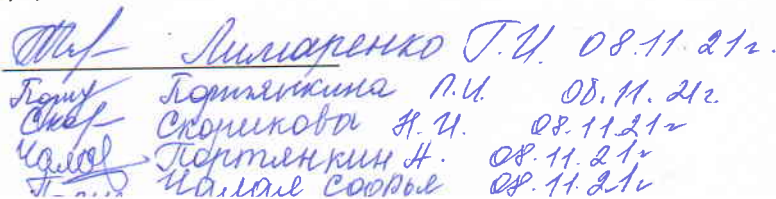 Лимаренко Т.И. 08.11.21г.
Портянкина Л.И. 08.11.21г.
Скор Скорикова Н.И. 08.11.21г
Чалая Портянкин А. 08.11.21г
Чалая Софья 08.11.21г